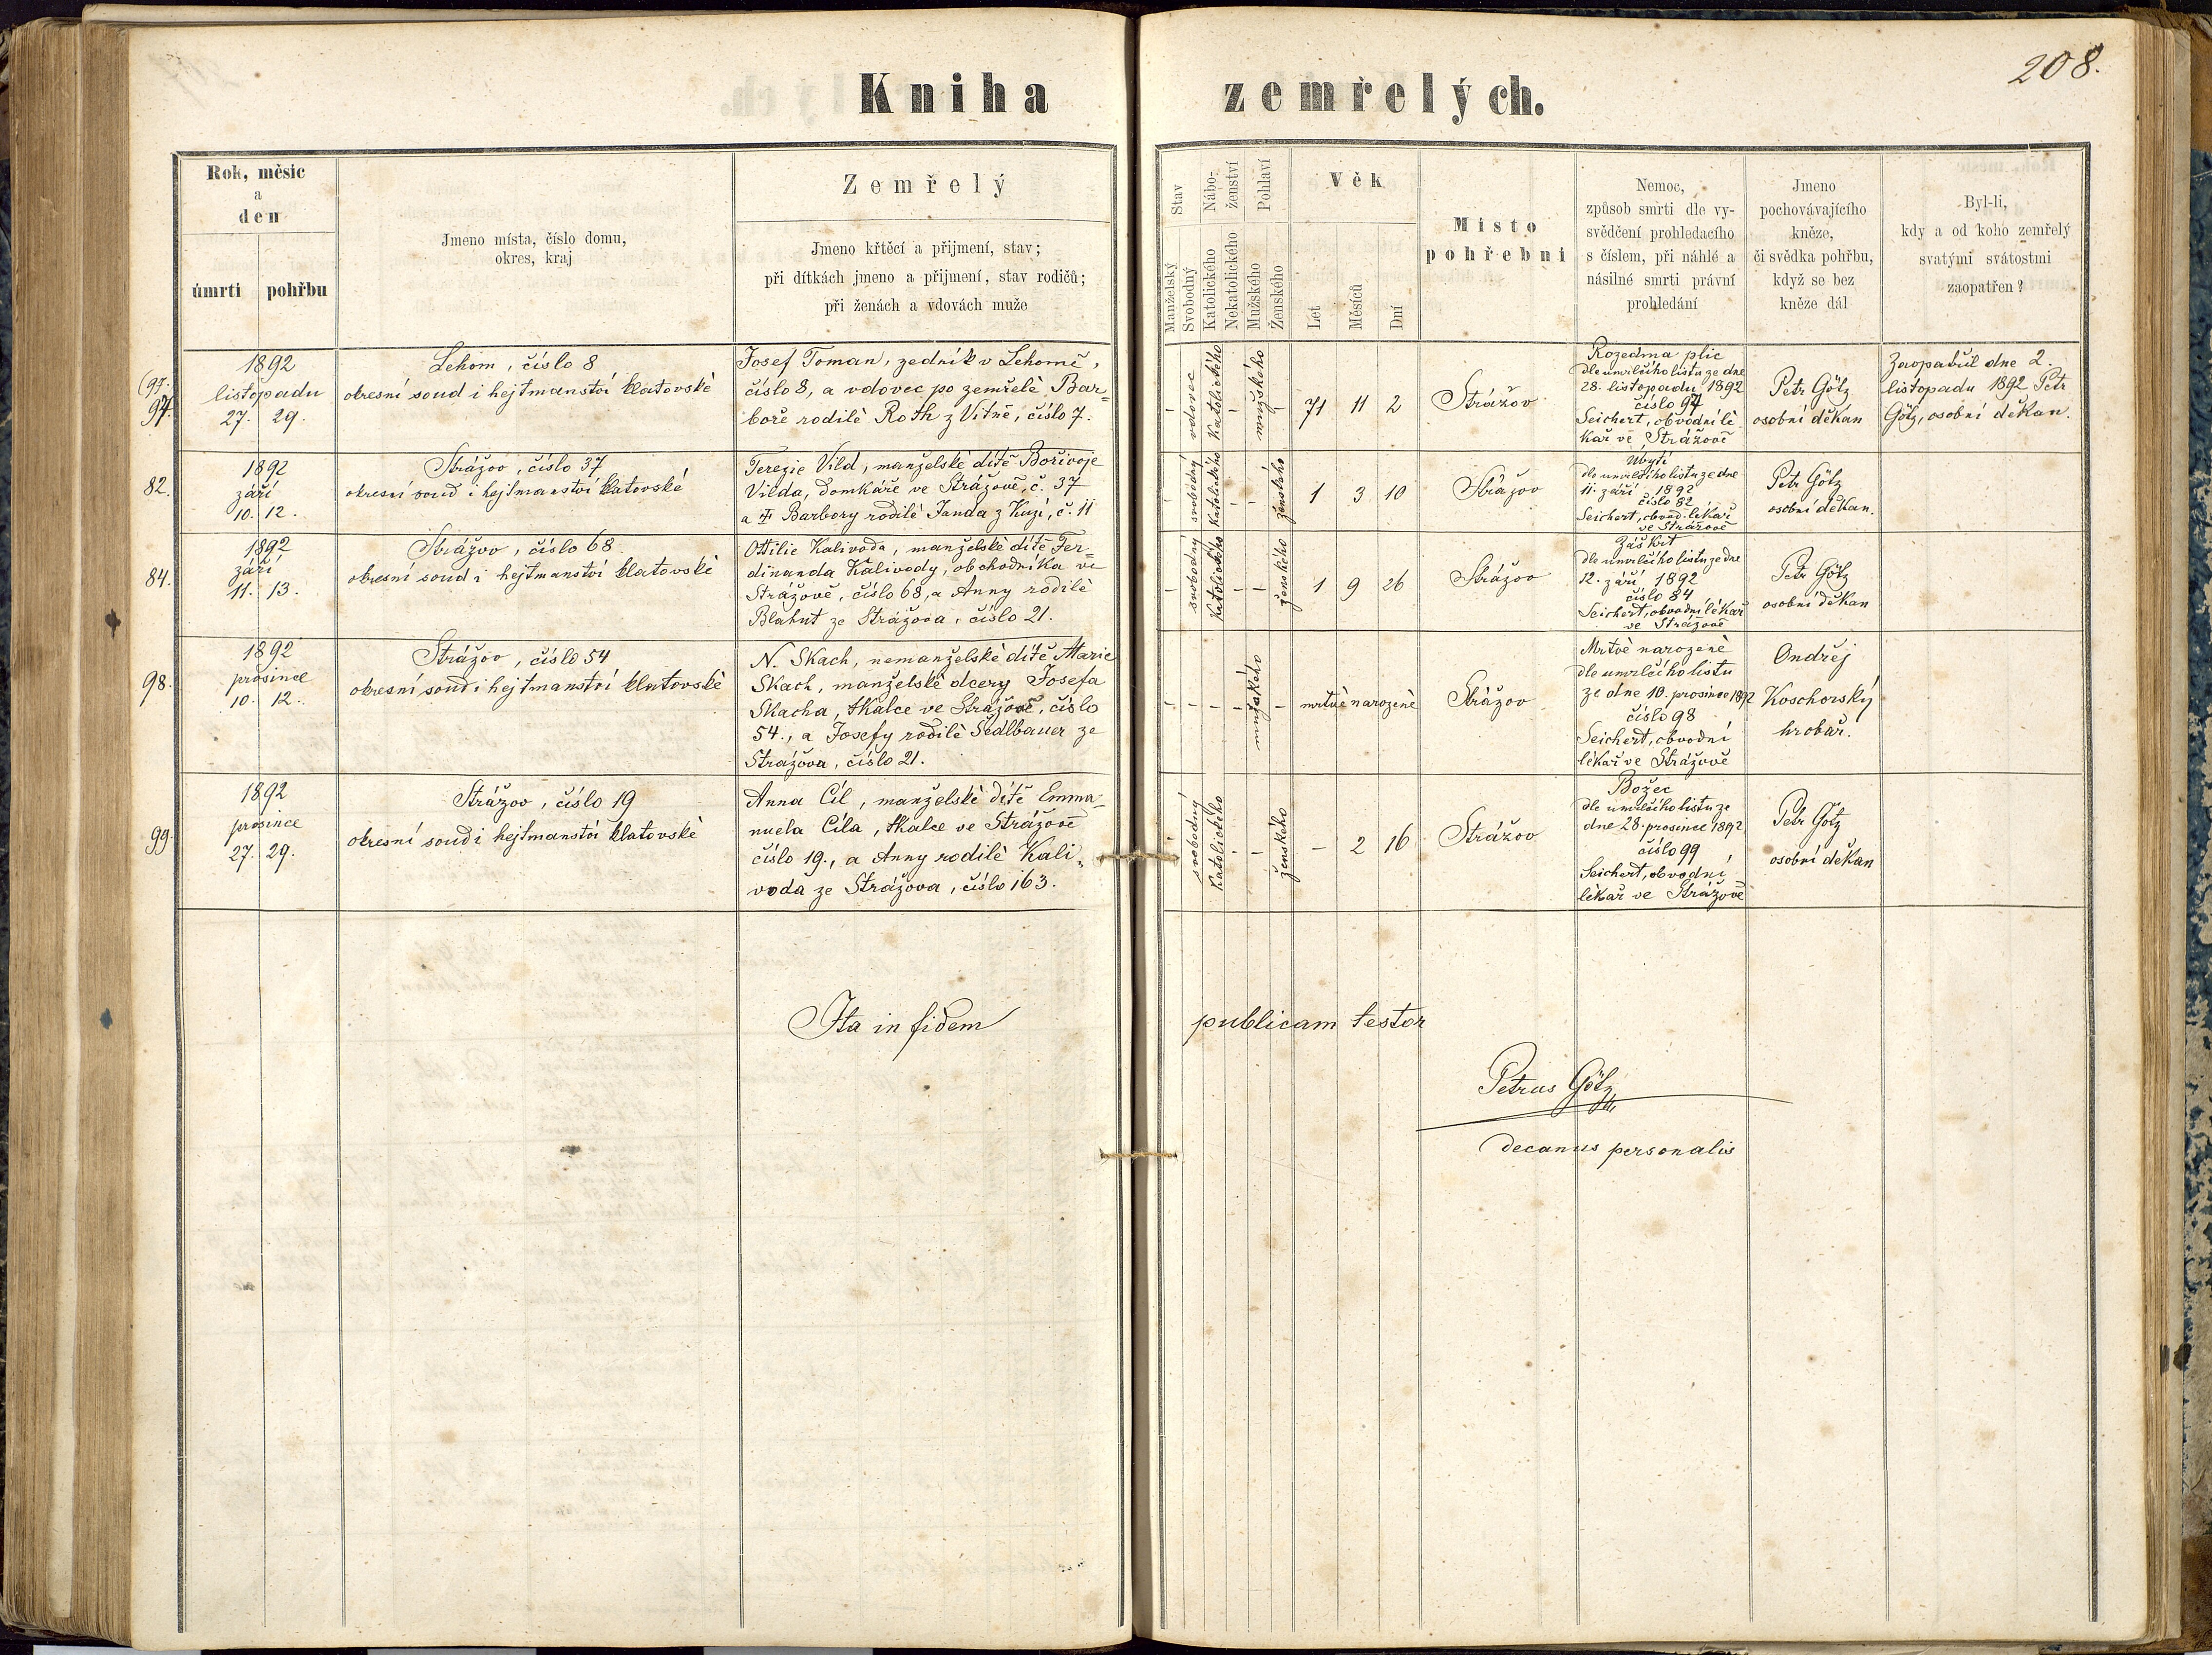 208.
Kniha zemřelých.
Rok, měsíc
a
den
úmrtí pohřbu
Jmeno místa, číslo domu,
okres, kraj
Zemřelý
Jmeno křtěcí a přijmení, stav;
při dítkách jmeno a přijmení, stav rodičů;
při ženách a vdovách muže
Stav
Manželský
Svobodný
Nábo-
ženství
Katolického
Nekatolického
Pohlaví
Mužského
Ženského
Věk
Let
Měsíců
Dní
Místo
pohřební
Nemoc,
způsob smrti dle vy-
svědčení prohledacího
s číslem, při náhlé a
násilné smrti právní
prohledání
Jmeno
pochovávajícího
kněze,
či svědka pohřbu,
když se bez
kněze dál
Byl-li,
kdy a od koho zemřelý
svatými svátostmi
zaopatřen?
(97.
97.
1892
listopadu
27. 29.
Lehom, číslo 8
okresní soud i hejtmanství klatovské
Josef Toman, zedník v Lehomě,
číslo 8, a vdovec po zemřelé Bar=
boře rodilé Roth z Vitně, číslo 7.
- vdovec Katolického - mužského -
71 11 2
Strážov
Rozedma plic
dle umrlčího listu ze dne
28. listopadu 1892
číslo 97
Seichert, obvodní lé
kař ve Strážově
Petr Götz
osobní děkan
Zaopatřil dne 2.
listopadu 1892 Petr
Götz, osobní děkan.
82.
1892
září
10. 12.
Strážov, číslo 37
okresní soud i hejtmanství klatovské
Terezie Vild, manželské dítě Bořivoje
Vilda, domkáře ve Strážově, č. 37
a Barbory rodilé Janda z Kuzí, č. 11
- svobodný Katolického - - ženského
1 3 10
Strážov
Ubytí
dle umrlčího listu ze dne
11. září 1892
číslo 82
Seichert, obvod. lékař
ve Strážově
Petr Götz
osobní děkan.
84.
1892
září
11. 13.
Strážov, číslo 68
okresní soud i hejtmanství klatovské
Ottilie Kalivoda, manželské dítě Fer=
dinanda Kalivody, obchodníka ve
Strážově, číslo 68, a Anny rodilé
Blahut ze Strážova, číslo 21.
- svobodný Katolického - - ženského
1 9 26
Strážov
Záškrt
dle umrlčího listu ze dne
12. září 1892
číslo 84
Seichert, obvodní lékař
ve Strážově
Petr Götz
osobní děkan
98.
1892
prosince
10. 12.
Strážov, číslo 54
okresní soud i hejtmanství klatovské
N. Skach, nemanželské dítě Marie
Skach, manželské dcery Josefa
Skacha, tkalce ve Strážově, číslo
54., a Josefy rodilé Sedlbauer ze
Strážova, číslo 21.
- - - - mužského -
mrtvě narozené
Strážov
Mrtvě narozené
dle umrlčího listu
ze dne 10. prosince 1892
číslo 98
Seichert, obvodní
lékař ve Strážově
Ondřej
Koschorský
hrobař.
99.
1892
prosince
27. 29.
Strážov, číslo 19
okresní soud i hejtmanství klatovské
Anna Cíl, manželské dítě Emma-
nuela Cíla, tkalce ve Strážově
číslo 19., a Anny rodilé Kali-
voda ze Strážova, číslo 163.
- svobodný Katolického - - ženského
- 2 16
Strážov
Božec
dle umrlčího listu ze
dne 28. prosince 1892
číslo 99
Seichert, obvodní
lékař ve Strážově
Petr Götz
osobní děkan
Ita in fidem publicam testor
Petrus Götz
decanus personalis